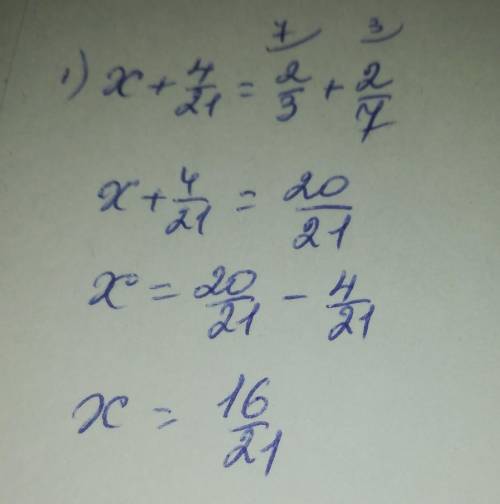 7 3
1) x + 4/21 = 2/3 + 2/7
x + 4/21 = 20/21
x = 20/21 - 4/21
x = 16/21